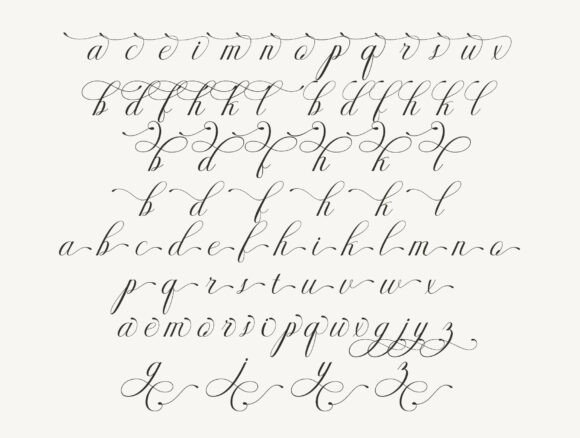 a c e i m n o p q r s u x
b d f h k l b d f h k l
b d f h k l
b d f h k l
a b c d e f h i k l m n o
p q r s t u v w x
a e m o r s i p q w x g j y z
g j y z